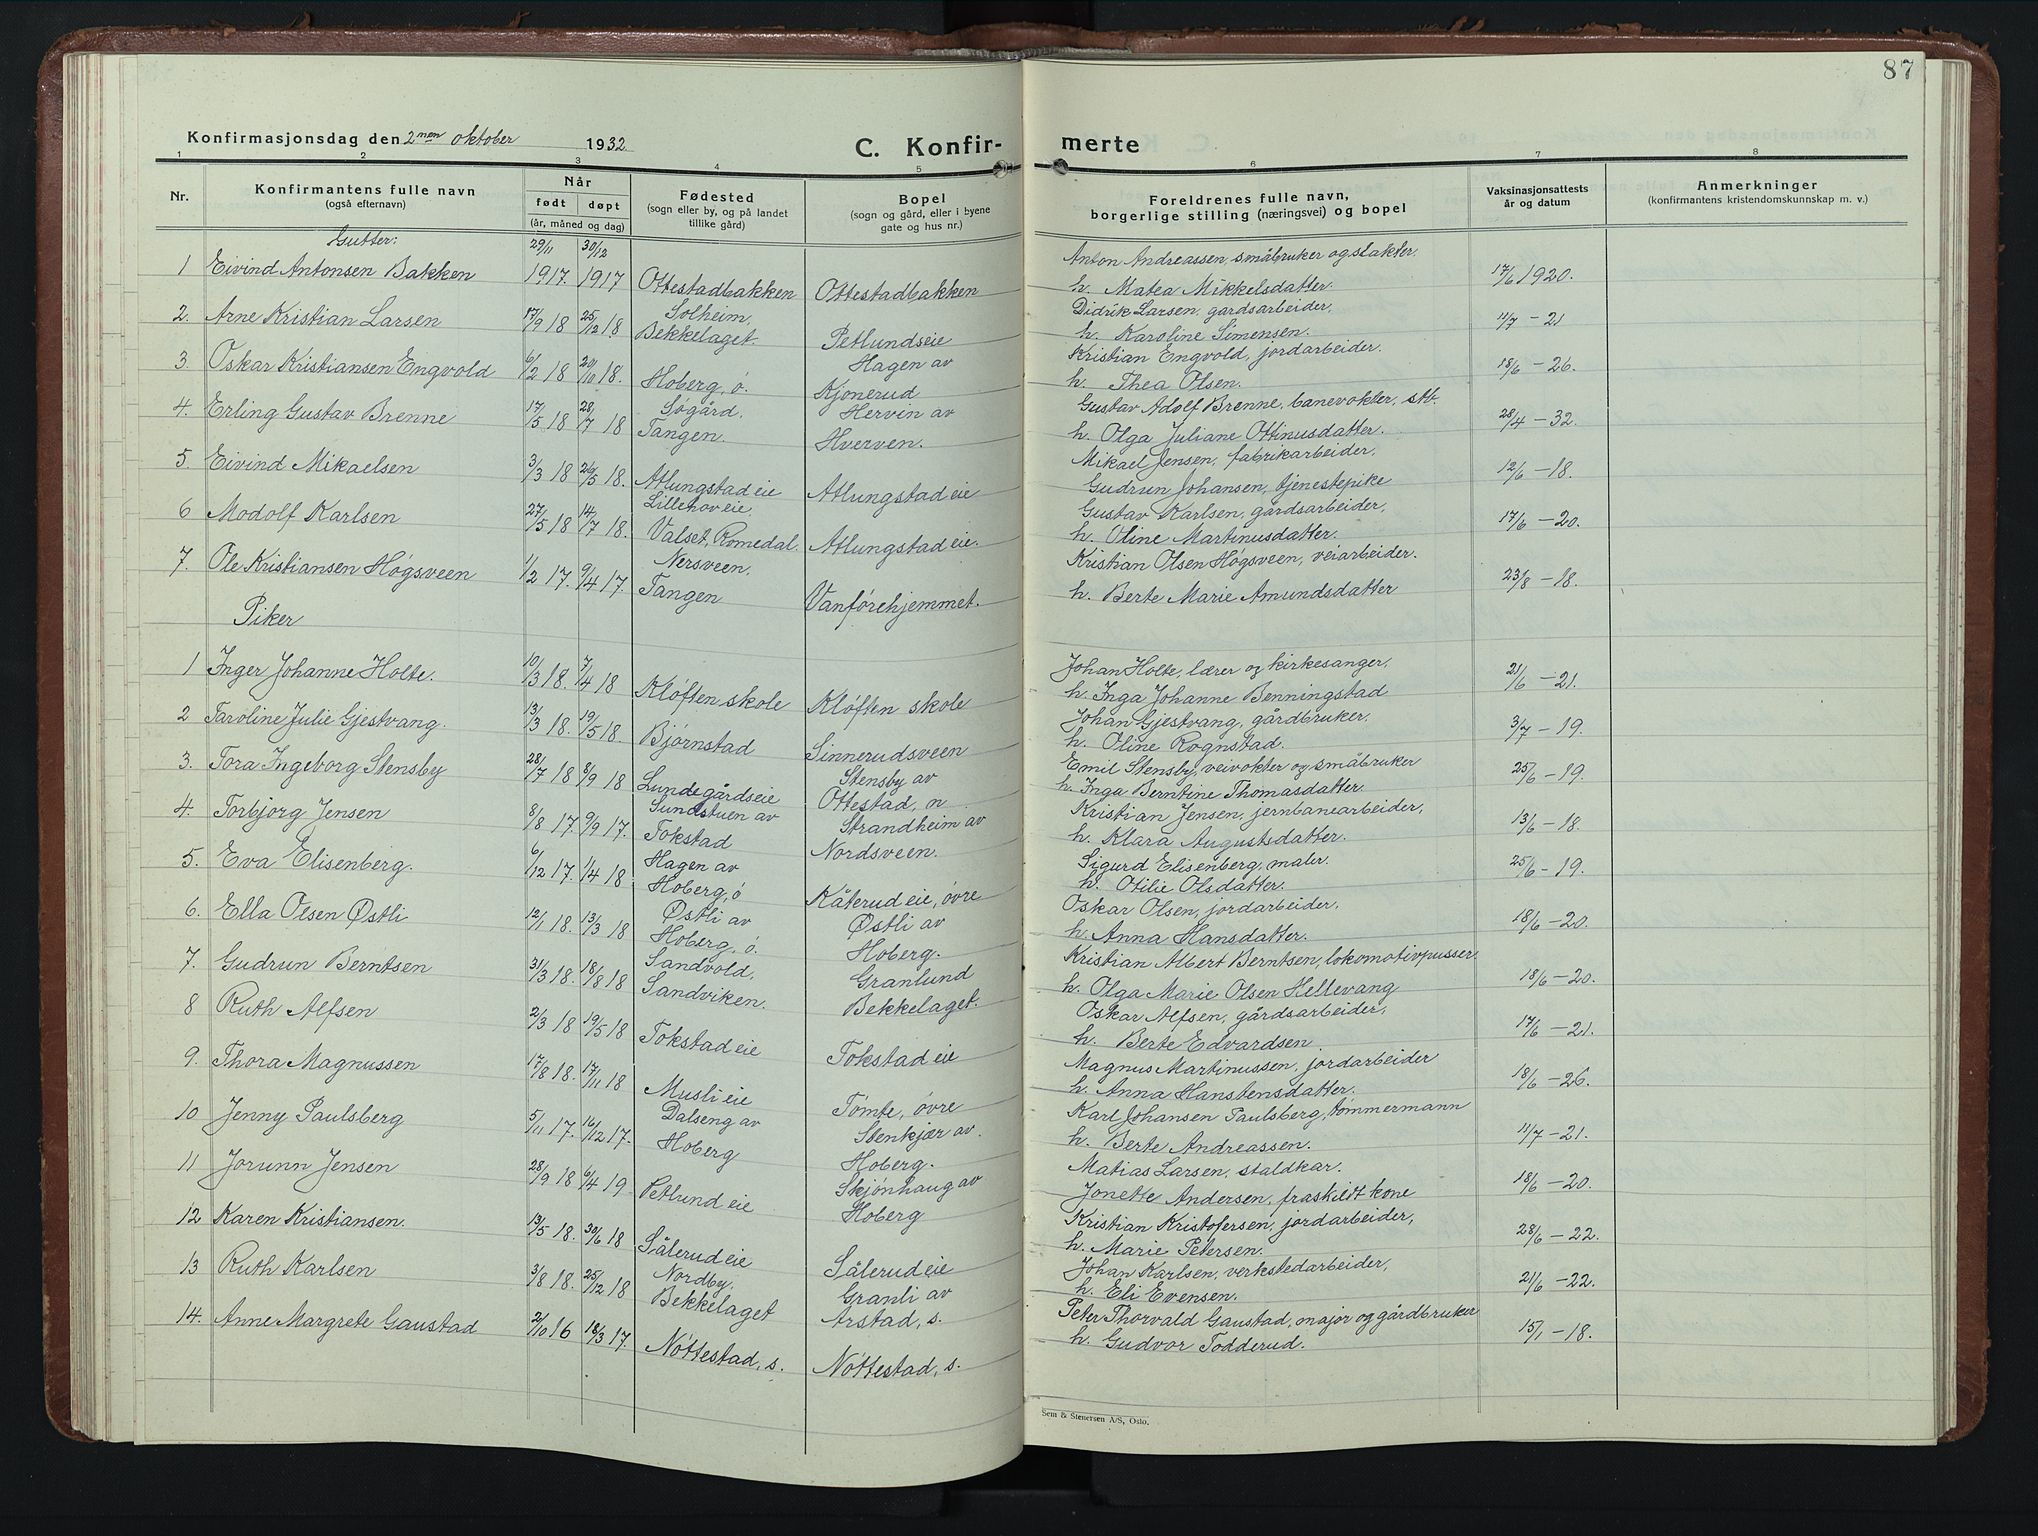 87
Konfirmasjonsdag den 2nen oktober 1932
C. Konfir-
merte
1 2 3 4 5 6 7 8
Nr.
Konfirmantens fulle navn
(også efternavn)
Når
født døpt
(år, måned og dag)
Fødested
(sogn eller by, og på landet
tillike gård)
Bopel
(sogn og gård, eller i byene
gate og hus nr.)
Foreldrenes fulle navn,
borgerlige stilling (næringsvei) og bopel
Vaksinasjonsattests
år og datum
Anmerkninger
(konfirmantens kristendomskunnskap m. v.)
Gutter:
1 Eivind Antonsen Bakken 29/11 1917. 30/12 1917 Ottestadbakken Ottestadbakken Anton Andreassen, småbruker og slakter.
h. Matea Mikkelsdatter. 17/6 1920.
2. Arne Kristian Larsen 17/9 18 25/12 18 Solheim, Bekkelaget. Petlundseie Didrik Larsen, gårdsarbeider,
h. Karoline Simensen. 11/7 - 21
3. Oskar Kristiansen Engvold 6/2 18 20/10 18. Hoberg, ø. Hagen av Kjonerud Kristian Engvold, jordarbeider.
h. Thea Olsen. 18/6 - 26.
4. Erling Gustav Brenne 17/5 18 28/7 18 Søgård, Tangen. Hervin av Hverven. Gustav Adolf Brenne, banevokter, stb.
h. Olga Juliane Ottinusdatter. 28/4 - 32.
5. Eivind Mikaelsen 3/3 18 26/5 18. Atlungstad eie Atlungstad eie Mikael Jensen, fabrikarbeider,
Gudrun Johansen, tjenestepike 12/6 - 18.
6 Modolf Karlsen 27/5 18 14/7 18. Lillehov eie, Valset, Romedal. Atlungstad eie. Gustav Karlsen, gårdsarbeider,
h. Oline Martinusdatter. 17/6 - 20.
7. Ole Kristiansen Høgsveen 1/2 17. 9/4 17. Nersveen, Tangen Vanførehjemmet. Kristian Olsen Høgsveen, veiarbeider.
h. Berte Marie Amundsdatter 23/8 - 18.
Piker
1 Inger Johanne Holte. 10/3 18. 7/4 18 Kløften skole Kløften skole Johan Holte, lærer og kirkesanger,
h. Inga Johanne Benningstad 21/6 - 21.
2 Taroline Julie Gjestvang. 13/3 18. 19/5 18. Bjørnstad Sinnerudsveen Johan Gjestvang, gårdbruker,
h. Oline Rognstad. 3/7 - 19.
3. Tora Ingeborg Stensby 28/7 18 8/9 18 Lundegårdseie Stensby av Ottestad, n Emil Stensby, veivokter og småbruker
h. Inga Berntine Thomasdatter. 25/6 - 19.
4. Torbjørg Jensen 8/8 17. 9/9 17. Sundstuen av Tokstad Strandheim av Nordsveen. Kristian Jensen, jernbanearbeider,
h. Klara Augustsdatter. 13/6 - 18.
5. Eva Elisenberg. 6/12 17. 1/4 18 Hagen av Hoberg, ø Kåterud eie, øvre Sigurd Elisenberg, maler.
h. Otilie Olsdatter. 25/6 - 19.
6. Ella Olsen Østli 12/1 18. 13/3 18 Østli av Hoberg, ø. Østli av Hoberg. Oskar Olsen, jordarbeider,
h. Anna Hansdatter. 18/6 - 20.
7. Gudrun Berntsen 31/3 18. 18/8 18 Sandvold, Sandviken. Granlund Bekkelaget. Kristian Albert Berntsen, lokomotivpusser
h. Olga Marie Olsen Hellevang 18/6 - 20.
8 Ruth Alfsen 2/3 18 19/5 18 Tokstad eie Tokstad eie Oskar Alfsen, gårdsarbeider,
h. Berte Edvardsen 17/6 - 21.
9. Thora Magnussen 17/8 18. 17/11 18 Musli eie Tømte, øvre Magnus Martinussen, jordarbeider
h. Anna Hanstensdatter. 18/6 - 26.
10 Jenny Paulsberg 5/11 17. 16/12 17. Dalseng av Hoberg Stenkjær av Hoberg. Karl Johansen Paulsberg, tømmermann
h. Berte Andreassen. 11/7 - 21.
11 Jorunn Jensen 28/9 18 6/4 19 Petlund eie Skjønhaug av Hoberg Matias Larsen, staldkar.
Jonette Andersen, fraskildt kone 18/6 - 20.
12 Karen Kristiansen. 13/5 18. 30/6 18 Sålerud eie Sålerud eie Kristian Kristofersen, jordarbeider,
h. Marie Petersen. 28/6 - 22.
13 Ruth Karlsen 3/8 18. 25/12 18 Nordby, Bekkelaget Granli av Arstad, s. Johan Karlsen, verkstedarbeider,
h. Eli Evensen. 21/6 - 22.
14. Anne Margrete Gaustad 2/10 16 18/3 17. Nøttestad, s. Nøttestad, s. Peter Thorvald Gaustad, major og gårdbruker
h. Gudvor Todderud. 15/1 - 18.
Sem & Stenersen A/S, Oslo.